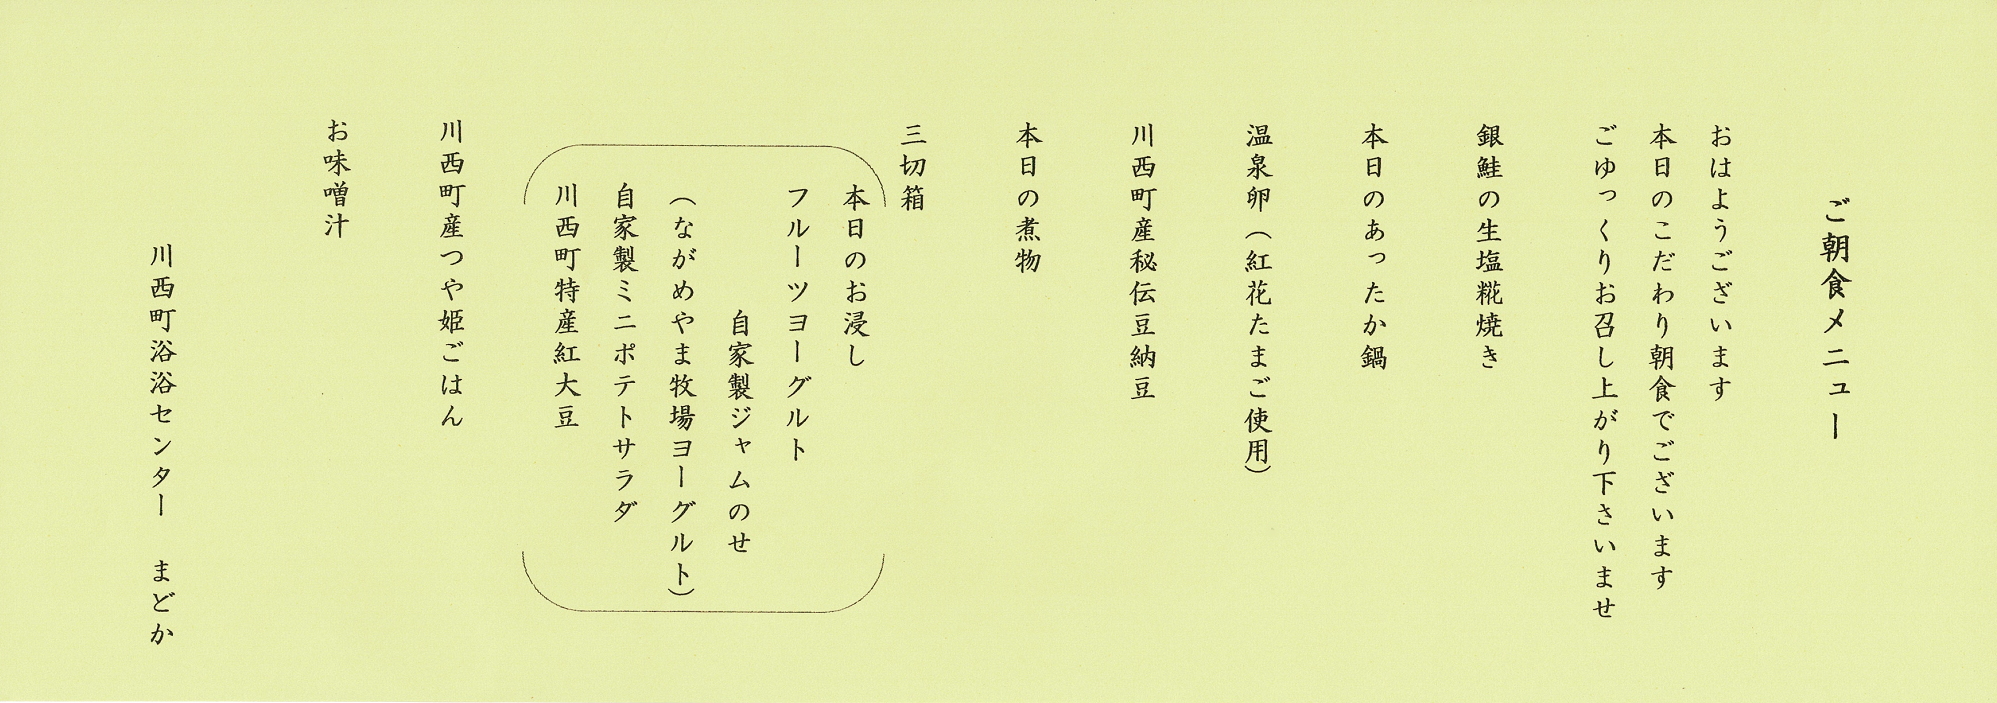 ご朝食メニュー
おはようございます
本日のこだわり朝食でございます
ごゆっくりお召し上がり下さいませ
銀鮭の生塩糀焼き
本日のあったか鍋
温泉卵（紅花たまご使用）
川西町産秘伝豆納豆
本日の煮物
三切箱
本日のお浸し
フルーツヨーグルト
自家製ジャムのせ
（ながめやま牧場ヨーグルト）
自家製ミニポテトサラダ
川西町特産紅大豆
川西町産つや姫ごはん
お味噌汁
川西町浴浴センター　まどか